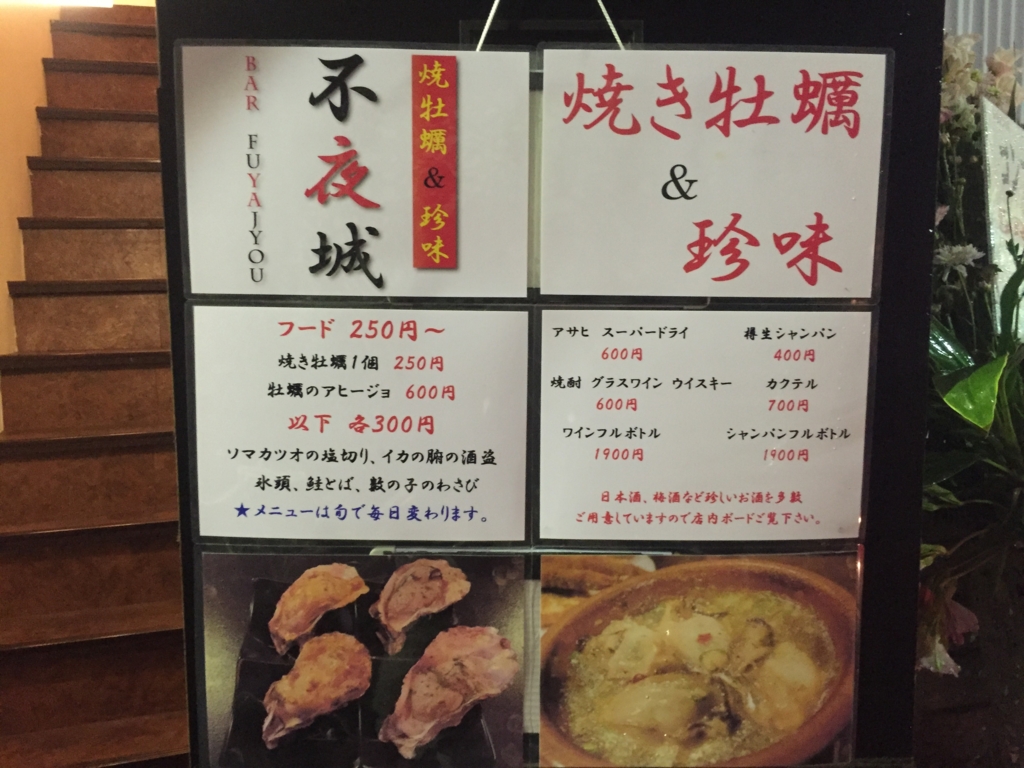 BAR FUYAJYOU
不夜城
焼牡蠣&珍味
焼き牡蠣
&
珍味
フード 250円〜
焼き牡蠣1個 250円
牡蠣のアヒージョ 600円
以下 各300円
ソマカツオの塩切り、イカの腑の酒盗
氷頭、鮭とば、数の子のわさび
★メニューは旬で毎日変わります。
アサヒ スーパードライ
600円
樽生シャンパン
400円
焼酎 グラスワイン ウイスキー
600円
カクテル
700円
ワインフルボトル
1900円
シャンパンフルボトル
1900円
日本酒、梅酒など珍しいお酒を多数
ご用意していますので店内ボードご覧下さい。